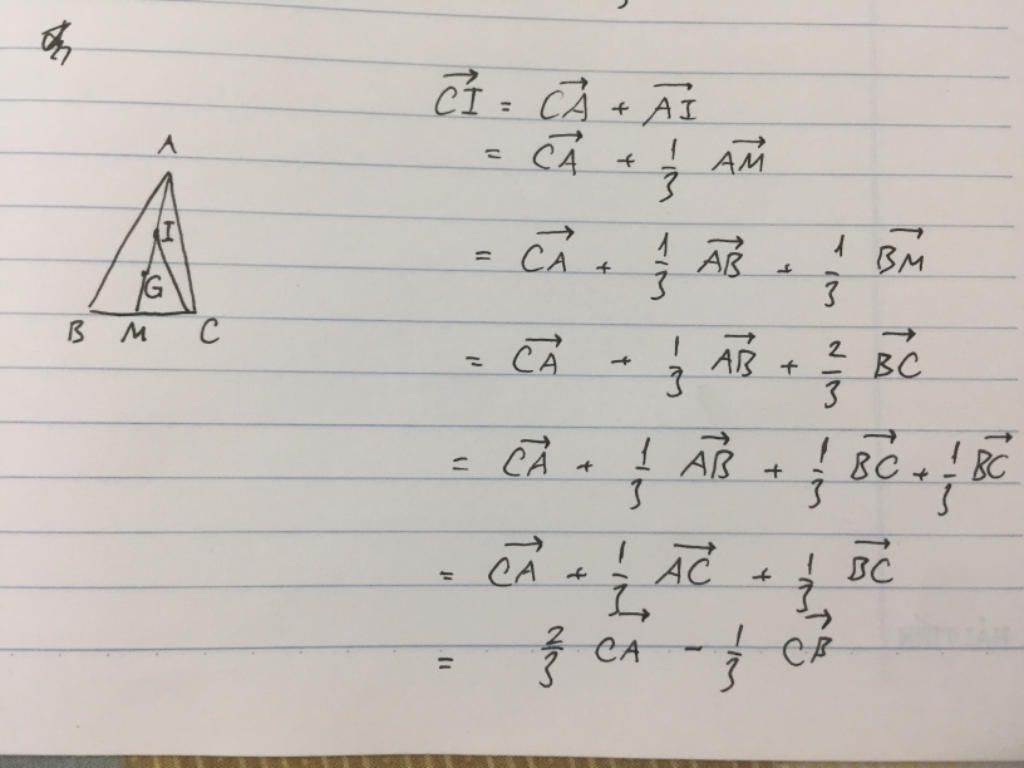 CI⃗ = CA⃗ + AI⃗
= CA⃗ + 1/3 AM⃗
A
I
G
B M C
= CA⃗ + 1/3 AB⃗ + 1/3 BM⃗
= CA⃗ + 1/3 AB⃗ + 2/3 BC⃗
= CA⃗ + 1/3 AB⃗ + 1/3 BC⃗ + 1/3 BC⃗
= CA⃗ + 1/3 AC⃗ + 1/3 BC⃗
= 2/3 CA⃗ - 1/3 CB⃗